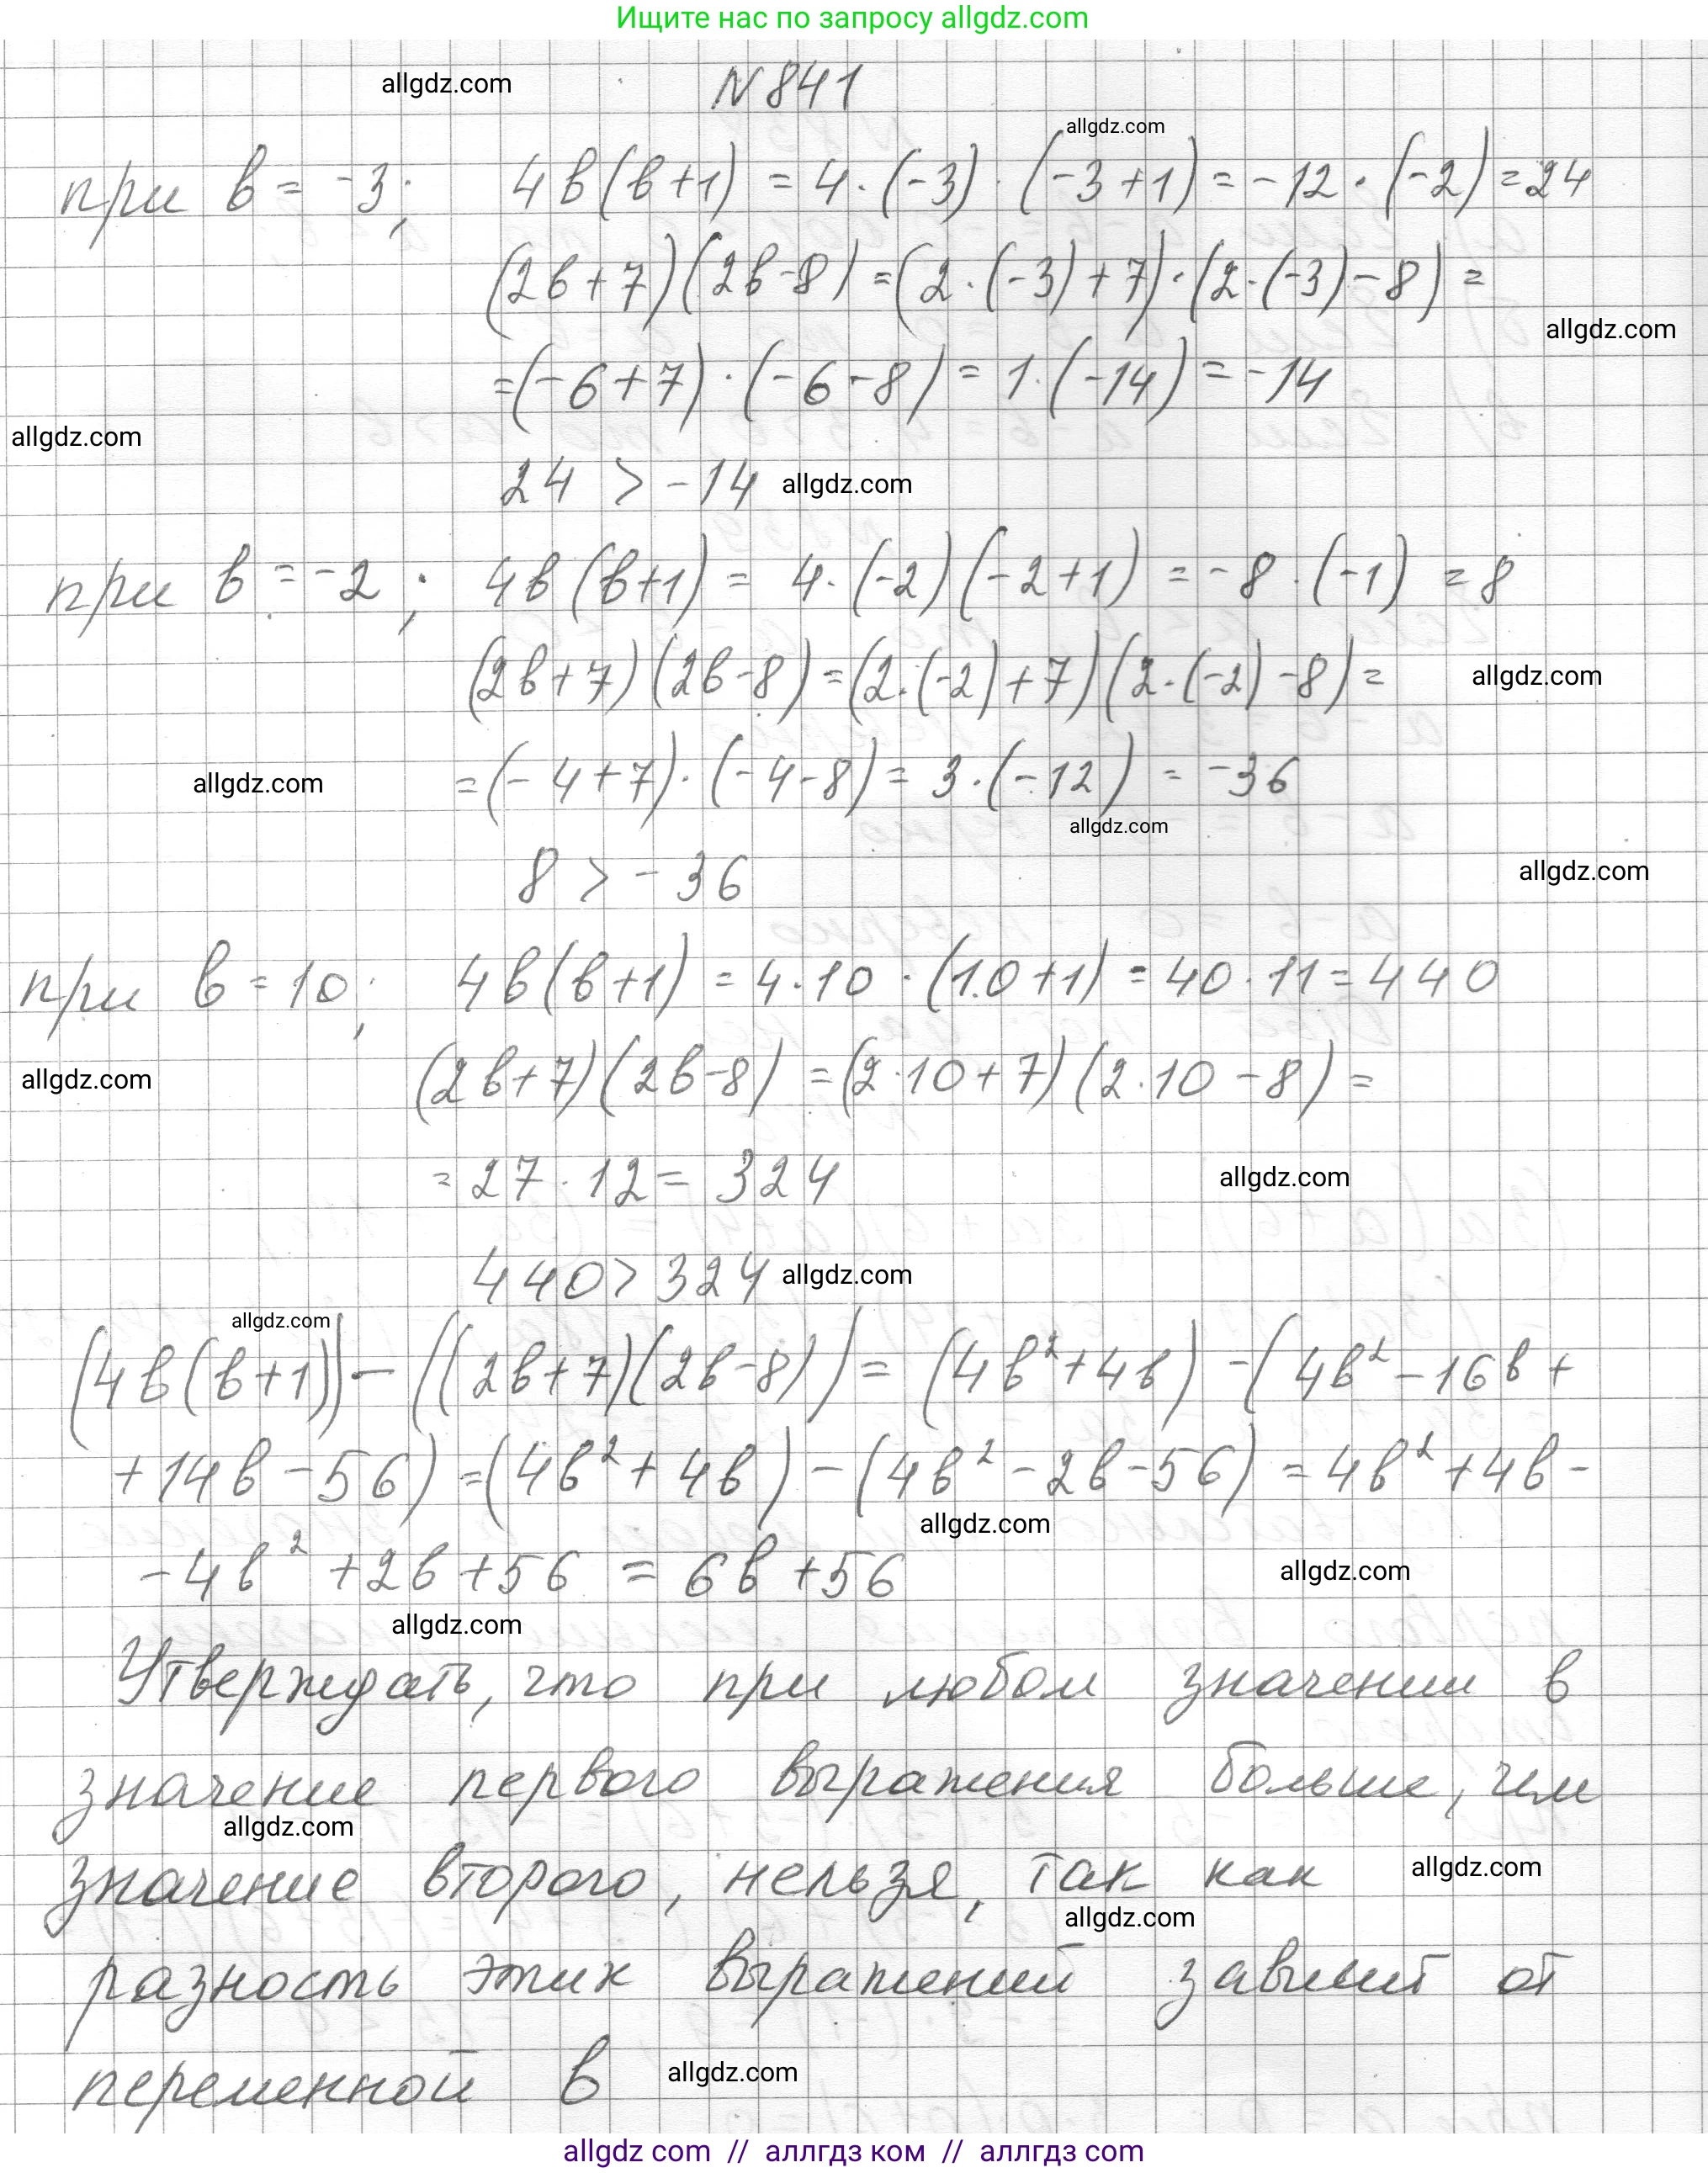 Ищите нас по запросу allgdz.com
allgdz.com
N 841
allgdz.com
при в = -3; 4в(в+1) = 4·(-3)·(-3+1) = -12·(-2) = 24
(2в+7)(2в-8) = (2·(-3)+7)·(2·(-3)-8) =
allgdz.com
=(-6+7)·(-6-8) = 1·(-14) = -14
allgdz.com
24 > -14 allgdz.com
при в = -2; 4в(в+1) = 4·(-2)(-2+1) = -8·(-1) = 8
(2в+7)(2в-8) = (2·(-2)+7)(2·(-2)-8) =
allgdz.com
=(-4+7)·(-4-8) = 3·(-12) = -36
allgdz.com
allgdz.com
8 > -36
allgdz.com
при в = 10; 4в(в+1) = 4·10·(10+1) = 40·11 = 440
(2в+7)(2в-8) = (2·10+7)(2·10-8) =
allgdz.com
= 27·12 = 324
allgdz.com
440 > 324 allgdz.com
allgdz.com
(4в(в+1)) - ((2в+7)(2в-8)) = (4в²+4в) - (4в²-16в+
+14в-56) = (4в²+4в) - (4в²-2в-56) = 4в²+4в-
allgdz.com
-4в²+2в+56 = 6в+56
allgdz.com
allgdz.com
Утверждать, что при любом значении в
значение первого выражения больше, чем
allgdz.com
значение второго, нельзя, так как
allgdz.com
allgdz.com
разность этих выражений зависит от
переменной в
allgdz.com
allgdz com // аллгдз ком // аллгдз com